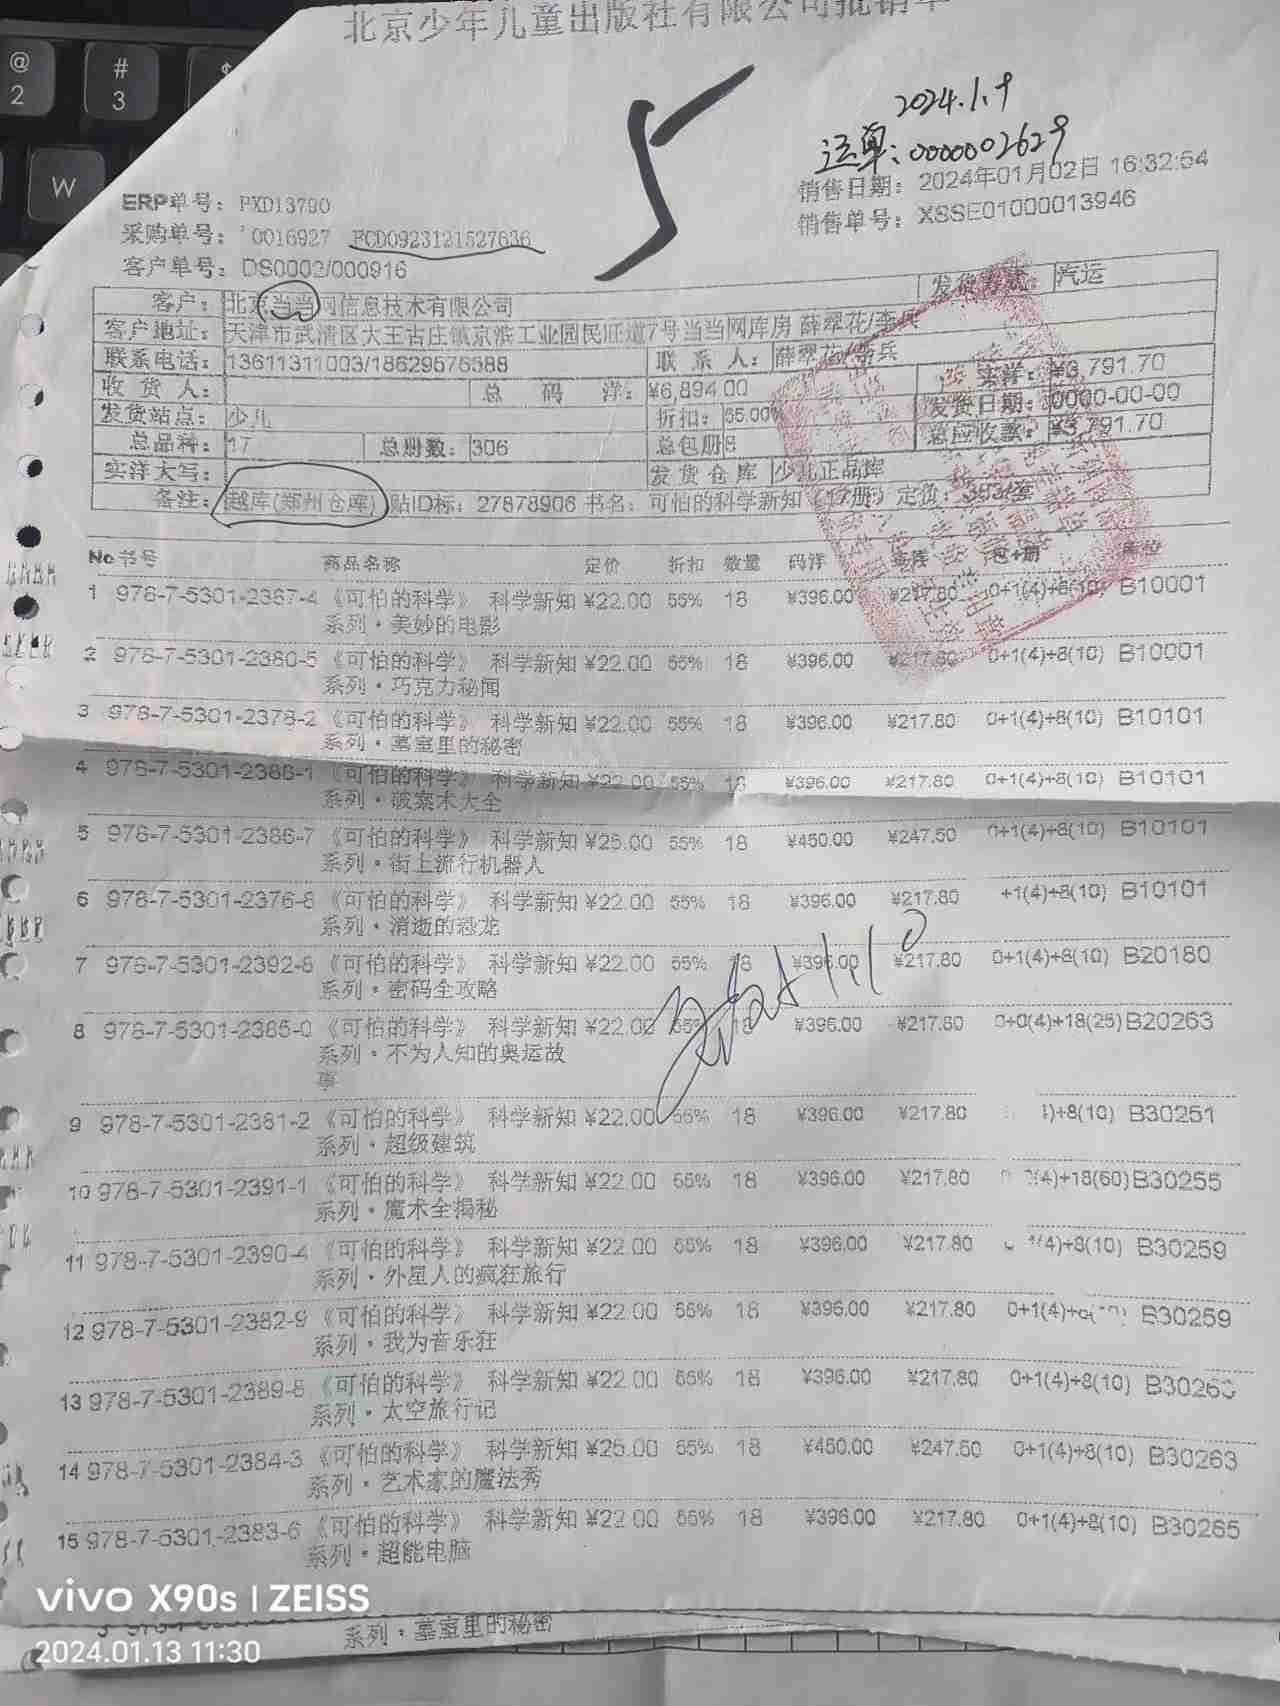 北京少年儿童出版社有限公司批销单
5
2024.1.9
运单:0000002629
销售日期: 2024年01月02日 16:32:54
销售单号: XSSE01000013946
ERP单号: PXD13790
采购单号: '0016927 PCD0923121527636
客户单号: DS0002/000916
客户: 北京当当网信息技术有限公司 发货方式: 汽运
客户地址: 天津市武清区大王古庄镇京滨工业园民旺道7号当当网库房 薛翠花/李兵
联系电话: 13611311003/18629576588 联系人: 薛翠花/李兵 实洋: ¥3,791.70
收货人: 总码洋: ¥6,894.00 发货日期: 0000-00-00
发货站点: 少儿 折扣: 55.00% 总应收款: ¥3,791.70
总品种: 17 总册数: 306 总包册 8
实洋大写: 发货仓库 少儿正品库
备注: 越库(郑州仓库) 贴ID标: 27878906 书名: 可怕的科学新知(17册) 定价:
No 书号 商品名称 定价 折扣 数量 码洋 实洋 包+册 库位
1 978-7-5301-2387-4 《可怕的科学》 科学新知 ¥22.00 55% 18 ¥396.00 ¥217.80 0+1(4)+8(10) B10001
系列·美妙的电影
2 978-7-5301-2380-5 《可怕的科学》 科学新知 ¥22.00 55% 18 ¥396.00 ¥217.80 0+1(4)+8(10) B10001
系列·巧克力秘闻
3 978-7-5301-2378-2 《可怕的科学》 科学新知 ¥22.00 55% 18 ¥396.00 ¥217.80 0+1(4)+8(10) B10101
系列·墓室里的秘密
4 978-7-5301-2388-1 《可怕的科学》 科学新知 ¥22.00 55% 18 ¥396.00 ¥217.80 0+1(4)+8(10) B10101
系列·破案术大全
5 978-7-5301-2386-7 《可怕的科学》 科学新知 ¥25.00 55% 18 ¥450.00 ¥247.50 0+1(4)+8(10) B10101
系列·街上流行机器人
6 978-7-5301-2376-8 《可怕的科学》 科学新知 ¥22.00 55% 18 ¥396.00 ¥217.80 +1(4)+8(10) B10101
系列·消逝的恐龙
7 978-7-5301-2392-8 《可怕的科学》 科学新知 ¥22.00 55% 18 ¥396.00 ¥217.80 0+1(4)+8(10) B20180
系列·密码全攻略
8 978-7-5301-2385-0 《可怕的科学》 科学新知 ¥22.00 55% 18 ¥396.00 ¥217.80 0+0(4)+18(25) B20263
系列·不为人知的奥运故
事
9 978-7-5301-2381-2 《可怕的科学》 科学新知 ¥22.00 55% 18 ¥396.00 ¥217.80 )+8(10) B30251
系列·超级建筑
10 978-7-5301-2391-1 《可怕的科学》 科学新知 ¥22.00 55% 18 ¥396.00 ¥217.80 (4)+18(60) B30255
系列·魔术全揭秘
11 978-7-5301-2390-4 《可怕的科学》 科学新知 ¥22.00 55% 18 ¥396.00 ¥217.80 (4)+8(10) B30259
系列·外星人的疯狂旅行
12 978-7-5301-2382-9 《可怕的科学》 科学新知 ¥22.00 55% 18 ¥396.00 ¥217.80 0+1(4)+ B30259
系列·我为音乐狂
13 978-7-5301-2389-8 《可怕的科学》 科学新知 ¥22.00 55% 18 ¥396.00 ¥217.80 0+1(4)+8(10) B30263
系列·太空旅行记
14 978-7-5301-2384-3 《可怕的科学》 科学新知 ¥25.00 55% 18 ¥450.00 ¥247.50 0+1(4)+8(10) B30263
系列·艺术家的魔法秀
15 978-7-5301-2383-6 《可怕的科学》 科学新知 ¥22.00 55% 18 ¥396.00 ¥217.80 0+1(4)+8(10) B30265
系列·超能电脑
系列·墓室里的秘密
vivo X90s | ZEISS
2024.01.13 11:30
@
2
#
3
W